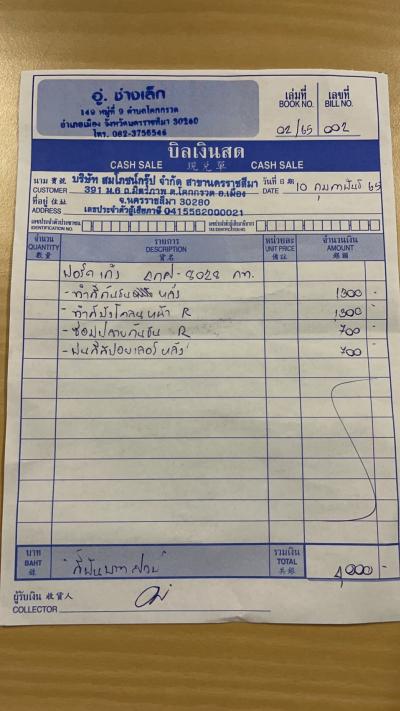 อู่. ช่างเล็ก
149 หมู่ที่ 9 ตำบลโคกกรวด
อำเภอเมือง จังหวัดนครราชสีมา 30280
โทร. 062-3756546
เล่มที่ BOOK NO. 02/65
เลขที่ BILL NO. 002
บิลเงินสด
CASH SALE 現兌單 CASH SALE
นาม 寶號 CUSTOMER บริษัท สมโภชน์กรุ๊ป จำกัด สาขานครราชสีมา
วันที่ DATE 10 กุมภาพันธ์ 65
391 ม.6 ถ.มิตรภาพ ต.โคกกรวด อ.เมือง
ที่อยู่ 住址 ADDRESS จ.นครราชสีมา 30280
เลขประจำตัวผู้เสียภาษี 0415562000021
เลขประจำตัวประชาชน IDENTIFICATION NO.
เลขประจำตัวผู้เสียภาษีอากร TAX IDENTIFICATION NO.
จำนวน QUANTITY 數量
รายการ DESCRIPTION 貨名
หน่วยละ UNIT PRICE 價註
จำนวนเงิน AMOUNT 銀碼
ฟอร์ด เก๋ง 8028 กท.
- ทำสีกันชน หลัง 1300 -
- ทำสีบังโคลนหน้า R 1300 -
- ซ่อมปลายกันชน R 700 -
- พ่นสีสปอยเลอร์ หลัง 700 -
บาท BAHT 銖 "สี่พันบาทถ้วน"
รวมเงิน TOTAL 共銀 4,000 -
ผู้รับเงิน 收貨人
COLLECTOR